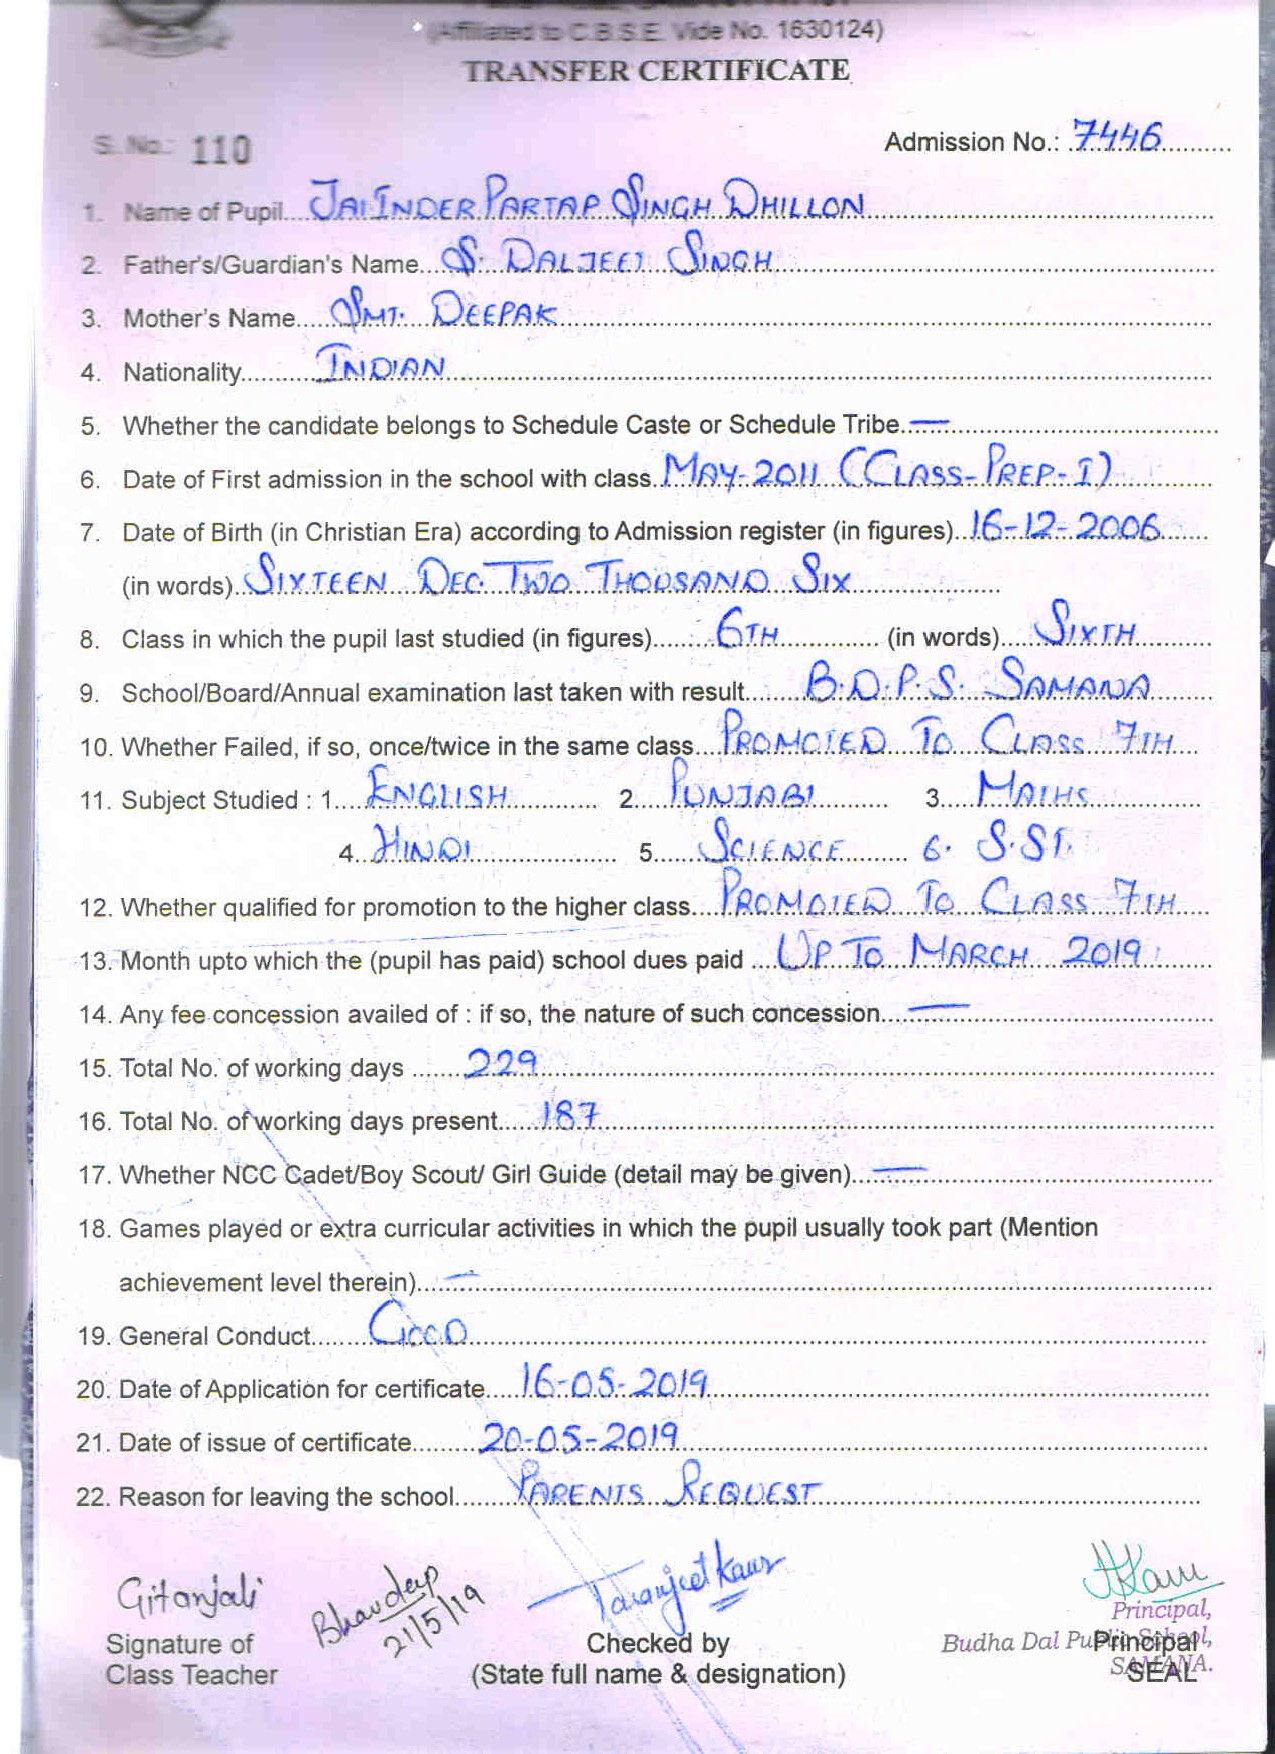 (Affiliated to C.B.S.E. Vide No. 1630124)
TRANSFER CERTIFICATE
S. No.: 110 Admission No.: 7446
1. Name of Pupil JAIINDER PARTAP SINGH DHILLON
2. Father's/Guardian's Name S. DALJEET SINGH
3. Mother's Name SMT. DEEPAK
4. Nationality INDIAN
5. Whether the candidate belongs to Schedule Caste or Schedule Tribe. —
6. Date of First admission in the school with class MAY-2011 (CLASS-PREP-I)
7. Date of Birth (in Christian Era) according to Admission register (in figures) 16-12-2006
(in words) SIXTEEN DEC. TWO THOUSAND SIX
8. Class in which the pupil last studied (in figures) 6TH (in words) SIXTH
9. School/Board/Annual examination last taken with result B.D.P.S. SAMANA
10. Whether Failed, if so, once/twice in the same class PROMOTED TO CLASS 7TH
11. Subject Studied : 1. ENGLISH 2. PUNJABI 3. MATHS
4. HINDI 5. SCIENCE 6. S.ST.
12. Whether qualified for promotion to the higher class PROMOTED TO CLASS 7TH
13. Month upto which the (pupil has paid) school dues paid UP TO MARCH 2019
14. Any fee concession availed of : if so, the nature of such concession —
15. Total No. of working days 229
16. Total No. of working days present 187
17. Whether NCC Cadet/Boy Scout/ Girl Guide (detail may be given) —
18. Games played or extra curricular activities in which the pupil usually took part (Mention
achievement level therein) —
19. General Conduct GOOD
20. Date of Application for certificate 16-05-2019
21. Date of issue of certificate 20-05-2019
22. Reason for leaving the school PARENTS REQUEST
Gitanjali Bhavdeep Taranjeet Kaur
21/5/19
Principal,
Budha Dal Public School,
SAMANA.
Signature of Checked by Principal
Class Teacher (State full name & designation) SEAL